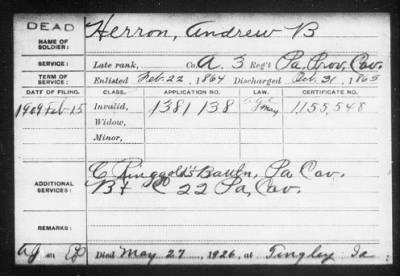 DEAD
NAME OF SOLDIER: Herron, Andrew B
SERVICE: Late rank, Co A. 3 Reg't Pa. Prov. Cav.
TERM OF SERVICE: Enlisted Feb. 22, 1864 Discharged Oct. 31, 1865
DATE OF FILING. CLASS. APPLICATION NO. LAW. CERTIFICATE NO.
1909 Feb-15 Invalid, 1381138 age May 1155,548
Widow,
Minor,
C Ringgold's Battln, Pa Cav.
ADDITIONAL SERVICES: B & C 22 Pa, Cav.
REMARKS:
Died May 27, 1926, at Tingley Ia